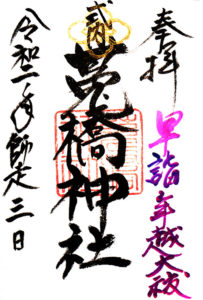 奉拝
早詣年越大祓
式内
莵橋神社
令和二年師走三日